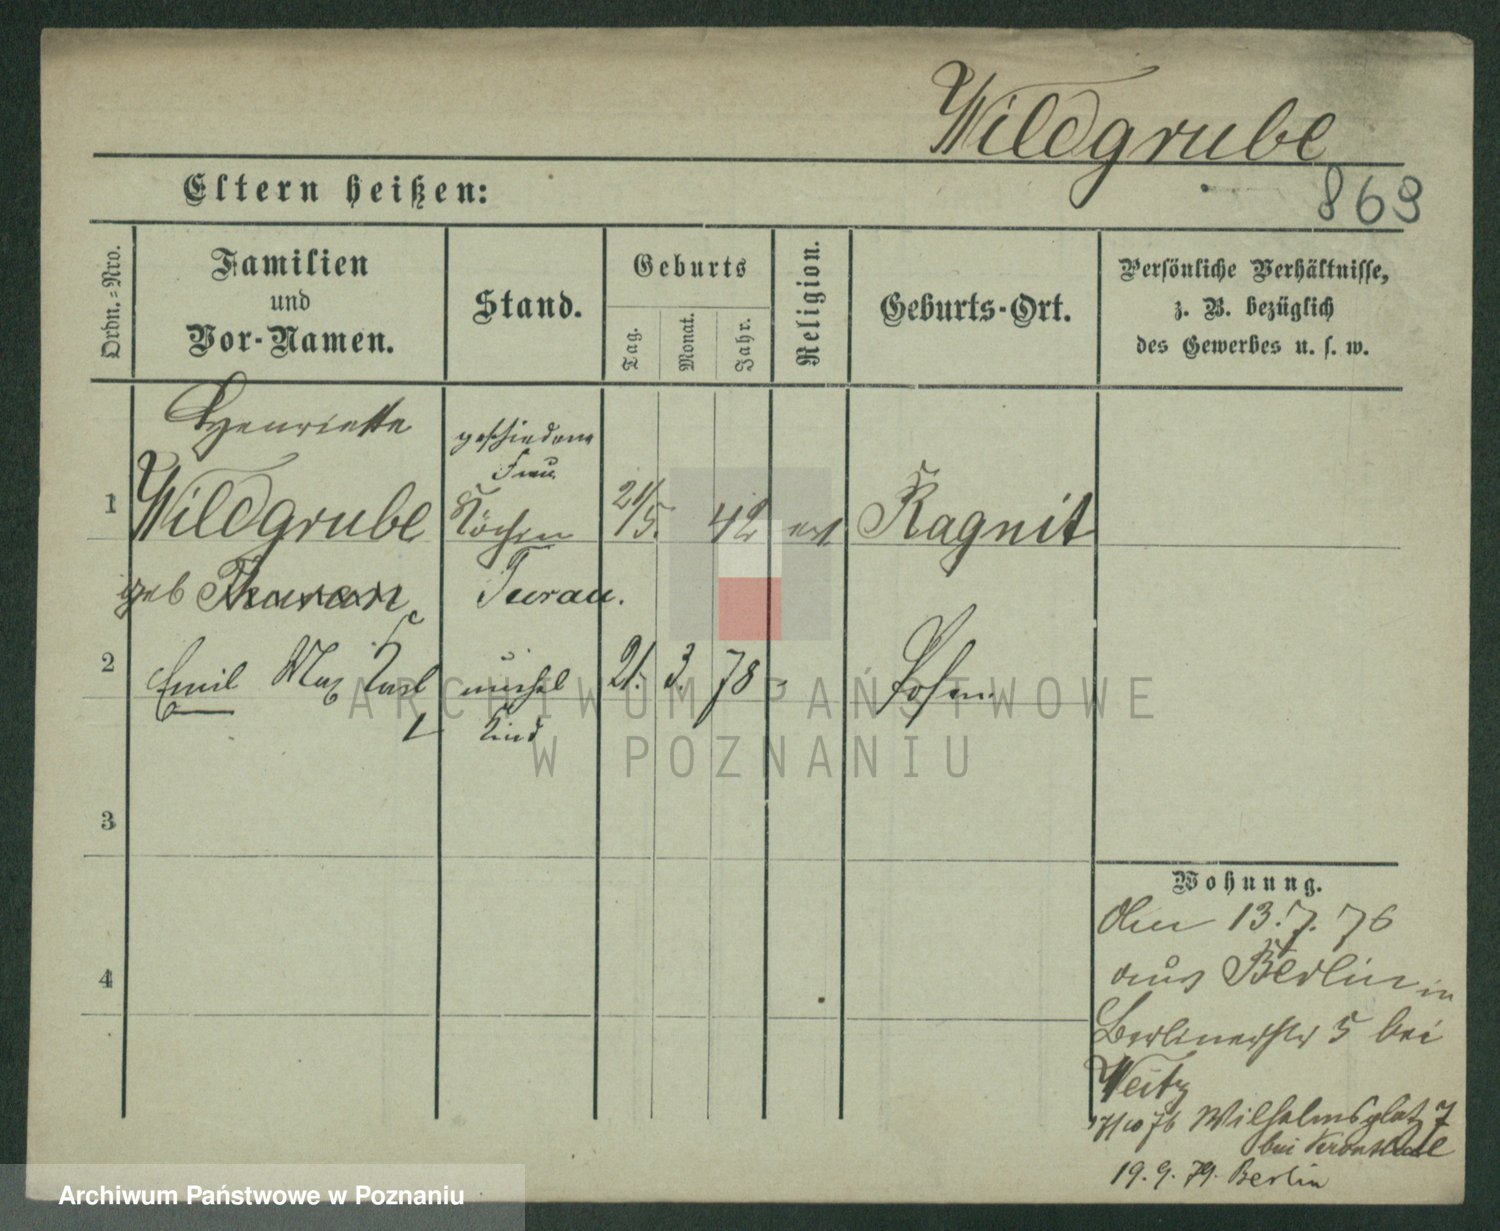 Wildgrube
869
Eltern heißen:
Ordn.=Nro.
Familien
und
Vor-Namen.
Stand.
Geburts
Tag.
Monat.
Jahr.
Religion.
Geburts-Ort.
Persönliche Verhältnisse,
z. B. bezüglich
des Gewerbes u. s. w.
Henriette
geschiedene
Frau
1 Wildgrube Köchin 21/5. 42 Ragnit
geb Thuran Turau.
2 Emil Max Karl unehel 21. 3. 78 Posen
Kind
3
4
Wohnung.
Den 13.7.76
aus Berlin in
Berlinerstr 5 bei
Weitz
17/10 76 Wilhelmsplatz 7
bei
19.9.79. Berlin
ARCHIWUM PAŃSTWOWE
W POZNANIU
Archiwum Państwowe w Poznaniu